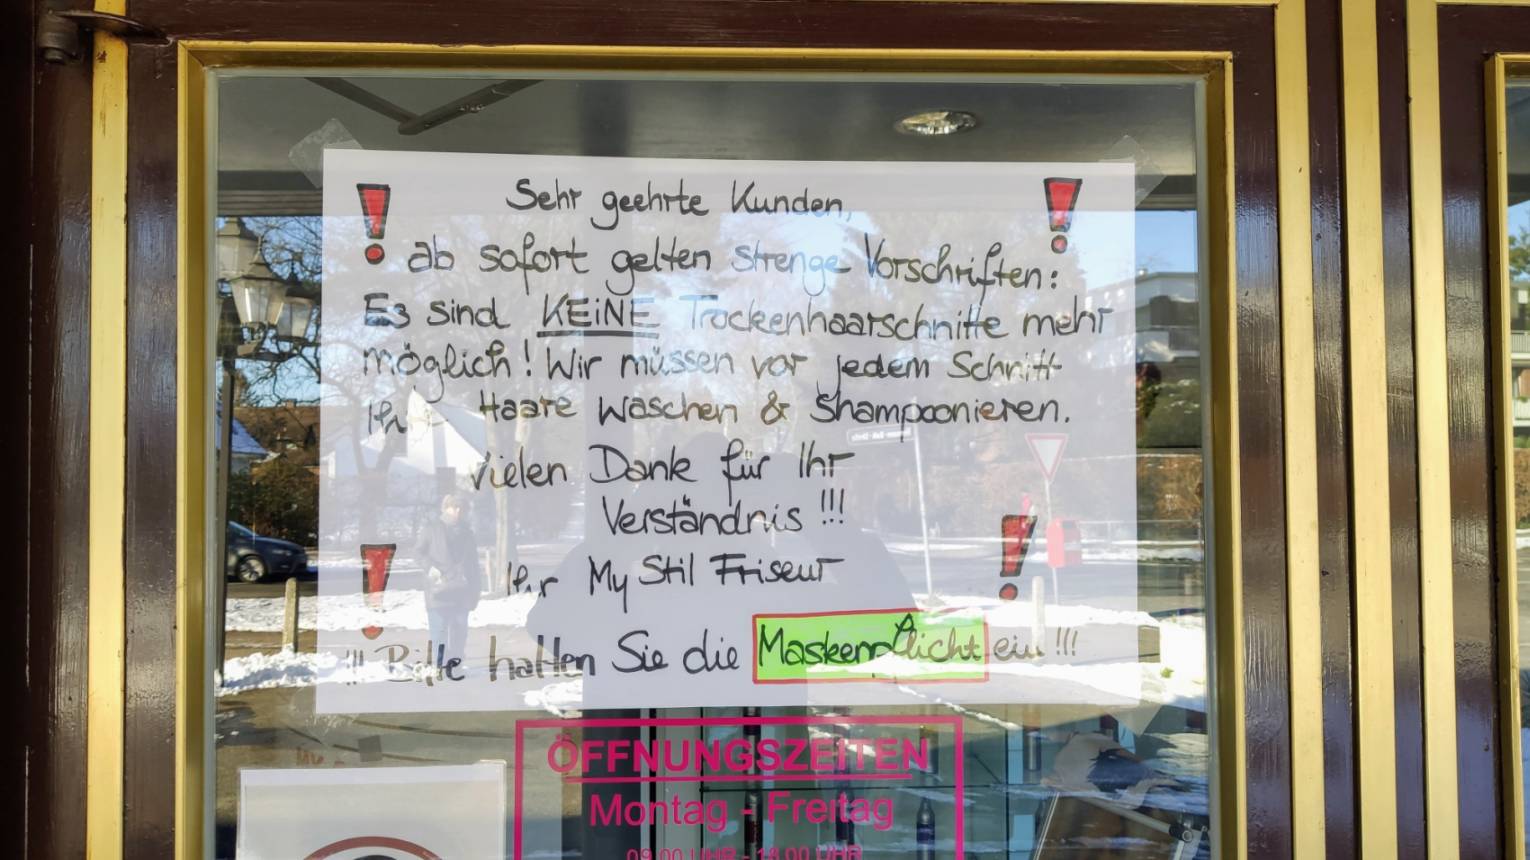 Sehr geehrte Kunden,
ab sofort gelten strenge Vorschriften:
Es sind KEINE Trockenhaarschnitte mehr
möglich! Wir müssen vor jedem Schnitt
Ihr Haare waschen & Shampoonieren.
Vielen Dank für Ihr
Verständnis !!!
Ihr My Stil Friseur
!!! Bitte halten Sie die Maskenpflicht ein !!!
ÖFFNUNGSZEITEN
Montag - Freitag
09.00 UHR - 18.00 UHR